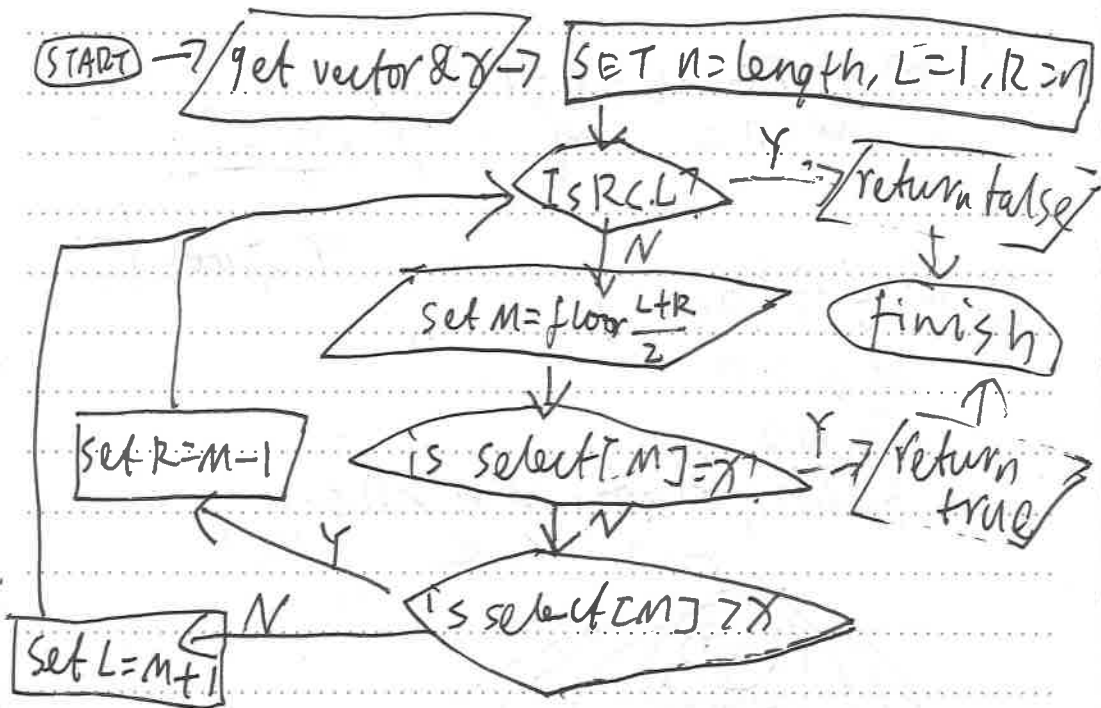 START
get vector & x
SET n=length, L=1, R=n
Is R<L?
Y
return false
N
set M=floor L+R
2
finish
set R=M-1
is select[M]=x?
Y
return
true
N
Y
is select[M]>x
N
set L=M+1